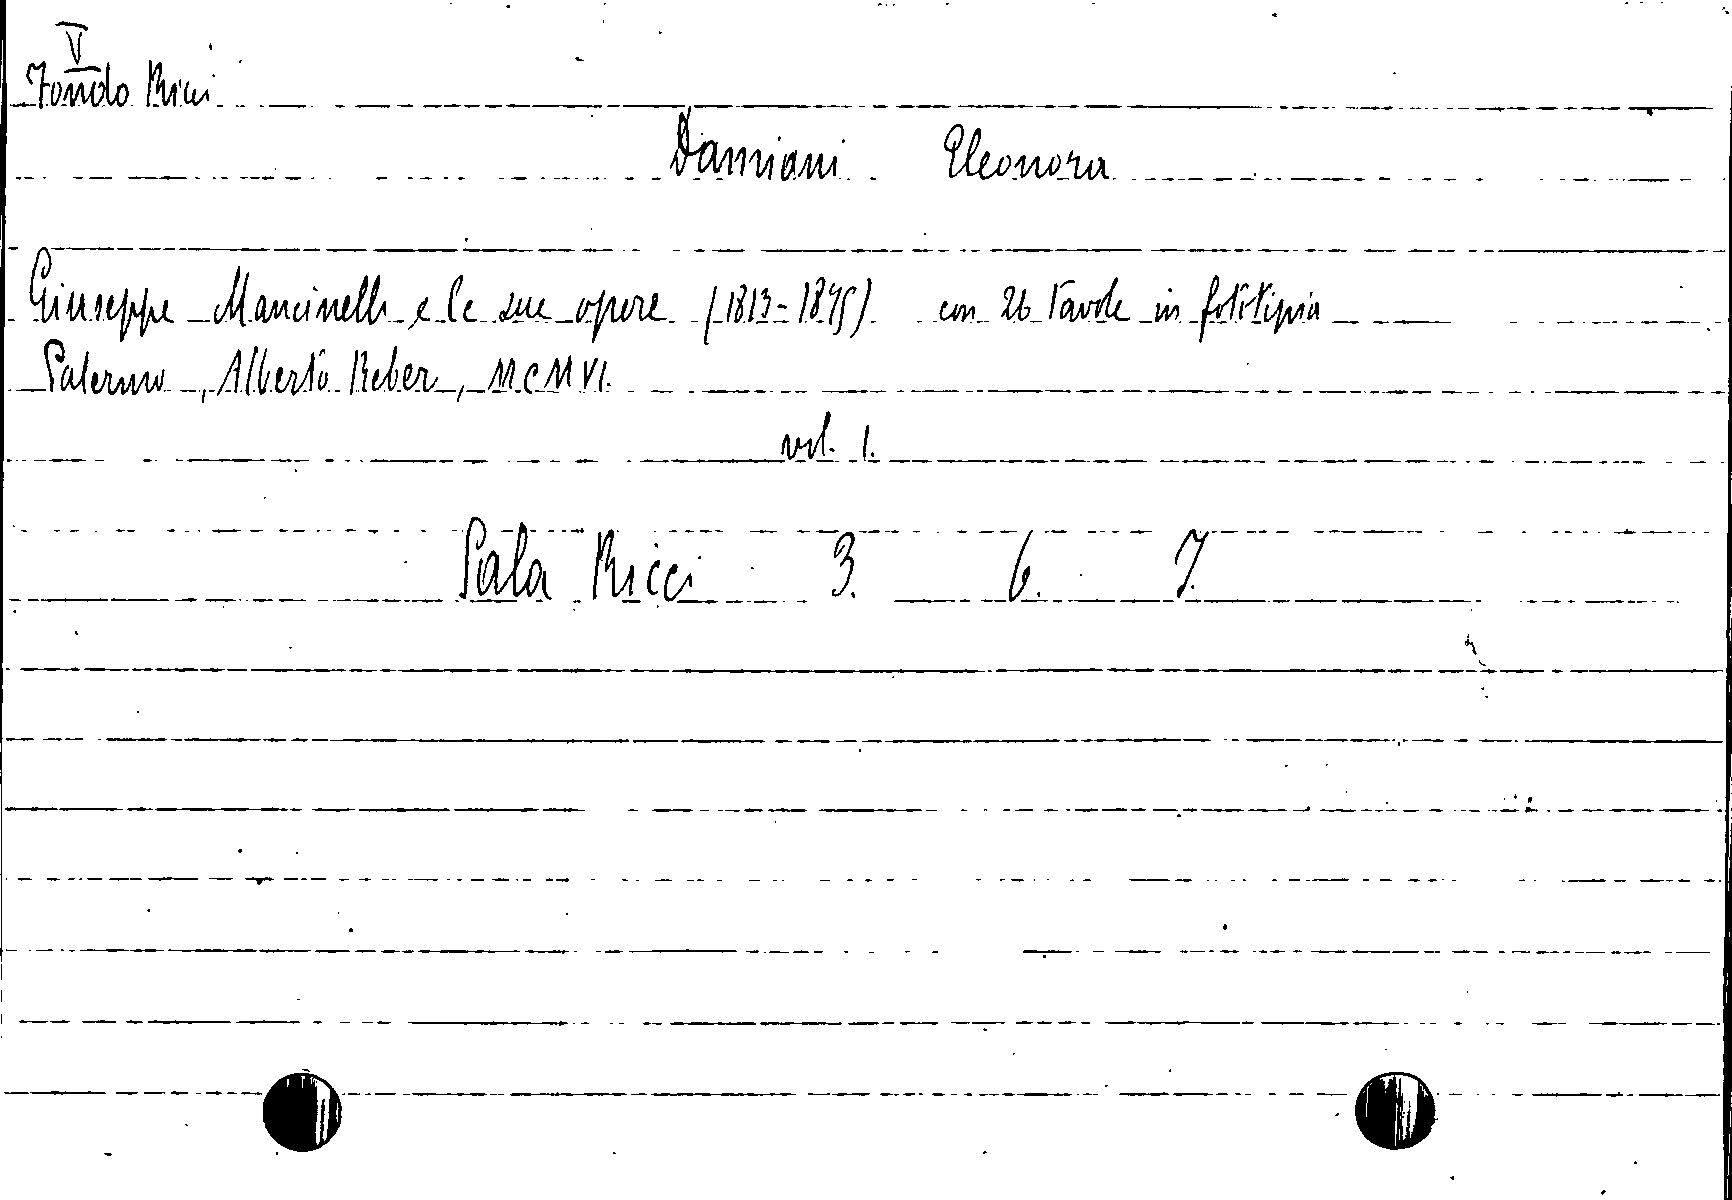 V
Fondo Ricci
Damiani Eleonora
Giuseppe Mancinelli e le sue opere (1813-1875) con 26 tavole in fototipia
Palermo, Alberto Reber, MCMVI.
vol. 1.
Sala Ricci 3. 6. 7.